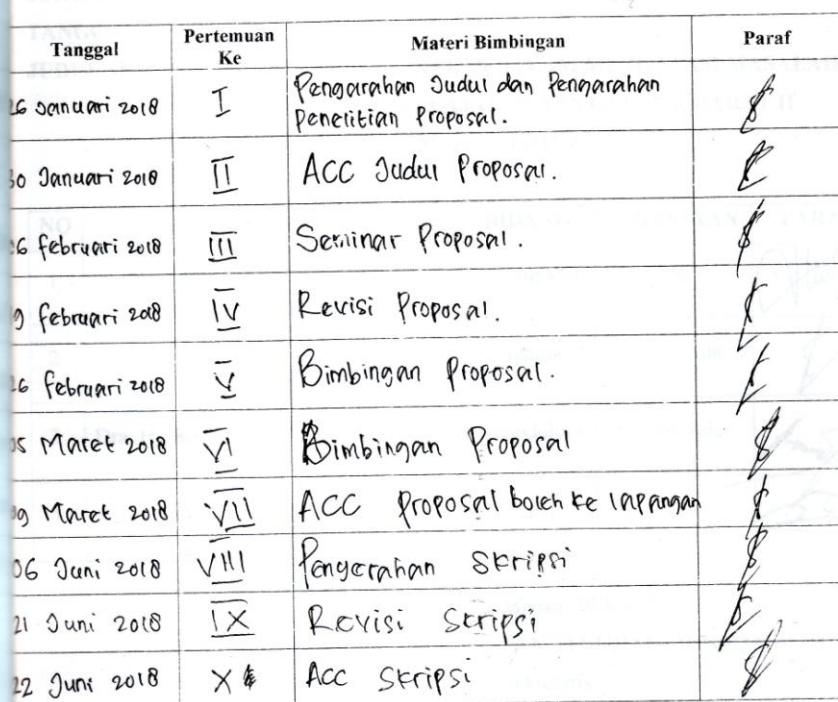 Tanggal Pertemuan Ke Materi Bimbingan Paraf
26 Januari 2018 I Pengarahan Judul dan Pengarahan
Penelitian Proposal.
30 Januari 2018 II ACC Judul Proposal.
06 februari 2018 III Seminar Proposal.
februari 2018 IV Revisi Proposal.
26 februari 2018 V Bimbingan Proposal.
05 Maret 2018 VI Bimbingan Proposal
09 Maret 2018 VII ACC Proposal boleh ke lapangan
06 Juni 2018 VIII Penyerahan Skripsi
21 Juni 2018 IX Revisi Skripsi
22 Juni 2018 X Acc Skripsi